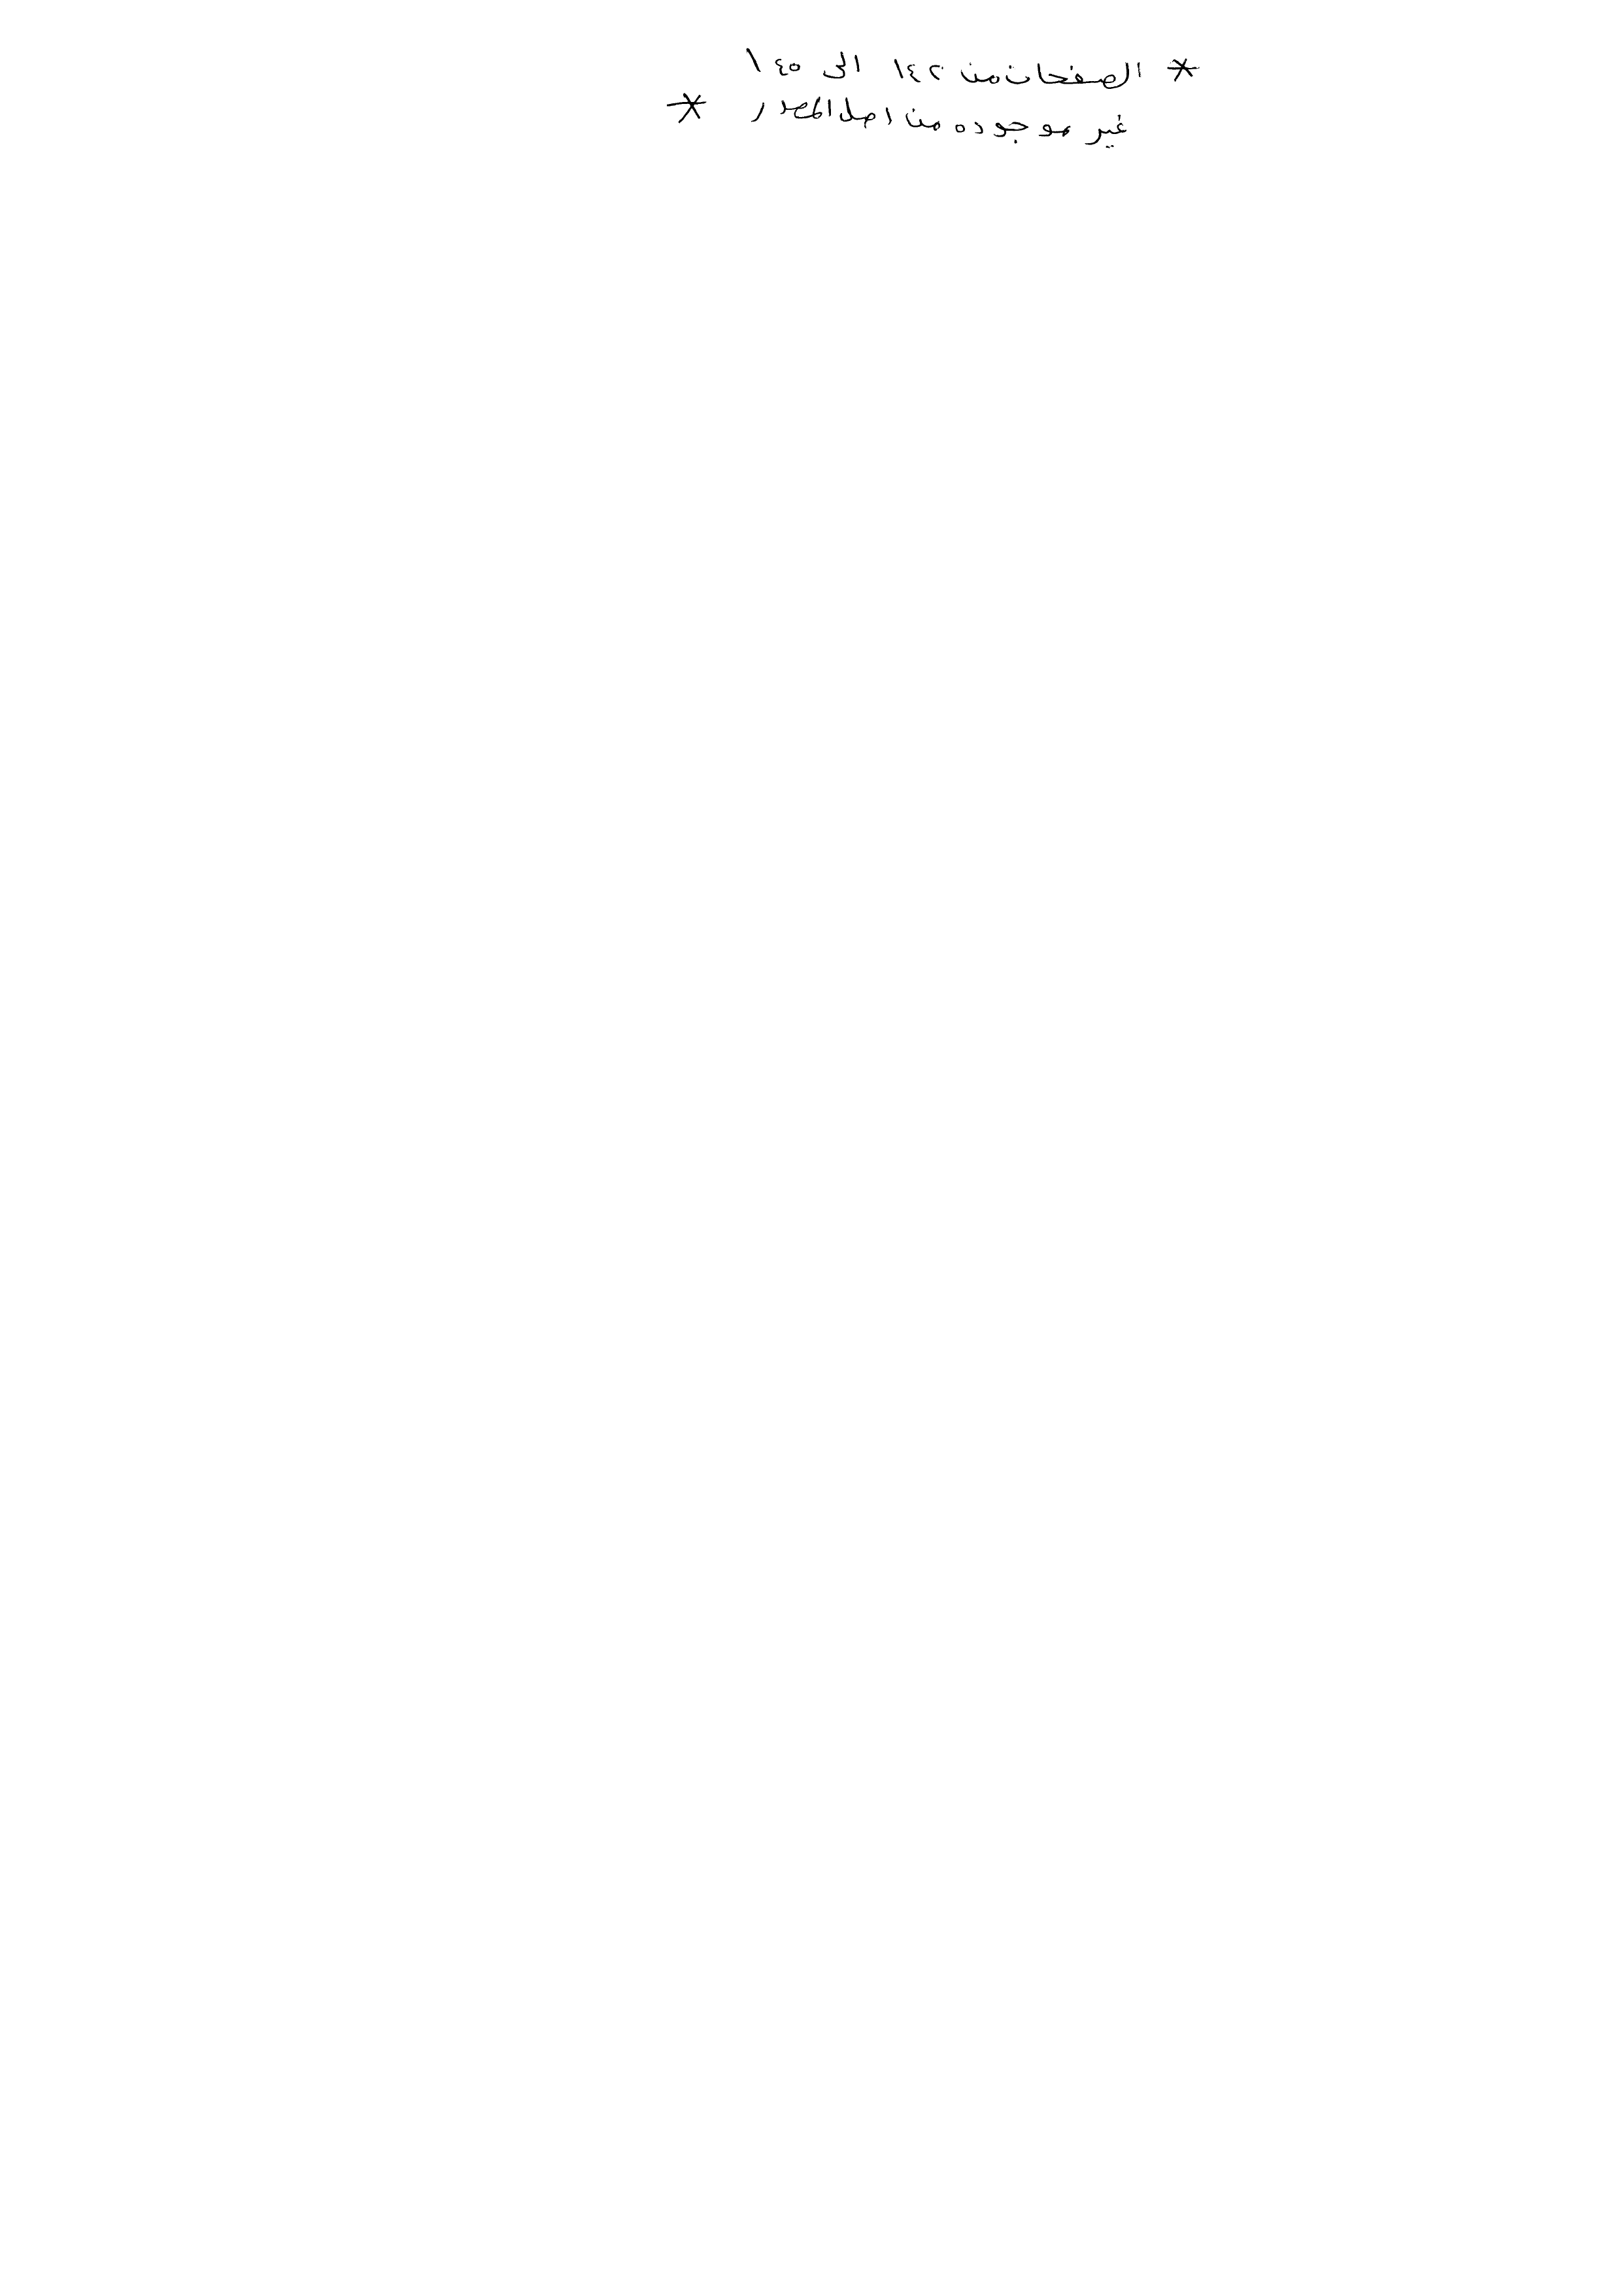 * الصفحات من ١٤٢ الى ١٤٥
غير موجوده من اصل المصدر *